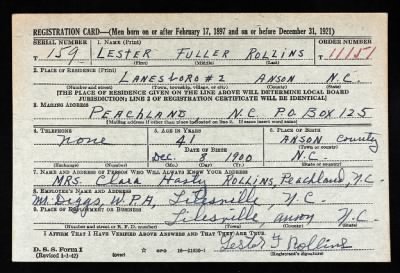 REGISTRATION CARD—(Men born on or after February 17, 1897 and on or before December 31, 1921)
SERIAL NUMBER 1. NAME (Print) ORDER NUMBER
T 159 LESTER FULLER ROLLINS T 11151
(First) (Middle) (Last)
2. PLACE OF RESIDENCE (Print)
LANESBORO #2 ANSON N.C.
(Number and street) (Town, township, village, or city) (County) (State)
[THE PLACE OF RESIDENCE GIVEN ON THE LINE ABOVE WILL DETERMINE LOCAL BOARD
JURISDICTION; LINE 2 OF REGISTRATION CERTIFICATE WILL BE IDENTICAL]
3. MAILING ADDRESS
PEACHLAND N.C. P.O. BOX 125
[Mailing address if other than place indicated on line 2. If same insert word same]
4. TELEPHONE 5. AGE IN YEARS 6. PLACE OF BIRTH
none 41 ANSON County
DATE OF BIRTH (Town or county)
Dec. 8 1900 N.C.
(Exchange) (Number) (Mo.) (Day) (Yr.) (State or country)
7. NAME AND ADDRESS OF PERSON WHO WILL ALWAYS KNOW YOUR ADDRESS
MRS. Clara Hasty ROLLINS, Peachland, N.C.
8. EMPLOYER'S NAME AND ADDRESS
M. Diggs, W.P.A, Lilesville, N.C.
9. PLACE OF EMPLOYMENT OR BUSINESS
Lilesville, anson N.C.
(Number and street or R. F. D. number) (Town) (County) (State)
I AFFIRM THAT I HAVE VERIFIED ABOVE ANSWERS AND THAT THEY ARE TRUE.
D. S. S. Form 1
(Revised 1-1-42) (over) Lester F Rollins